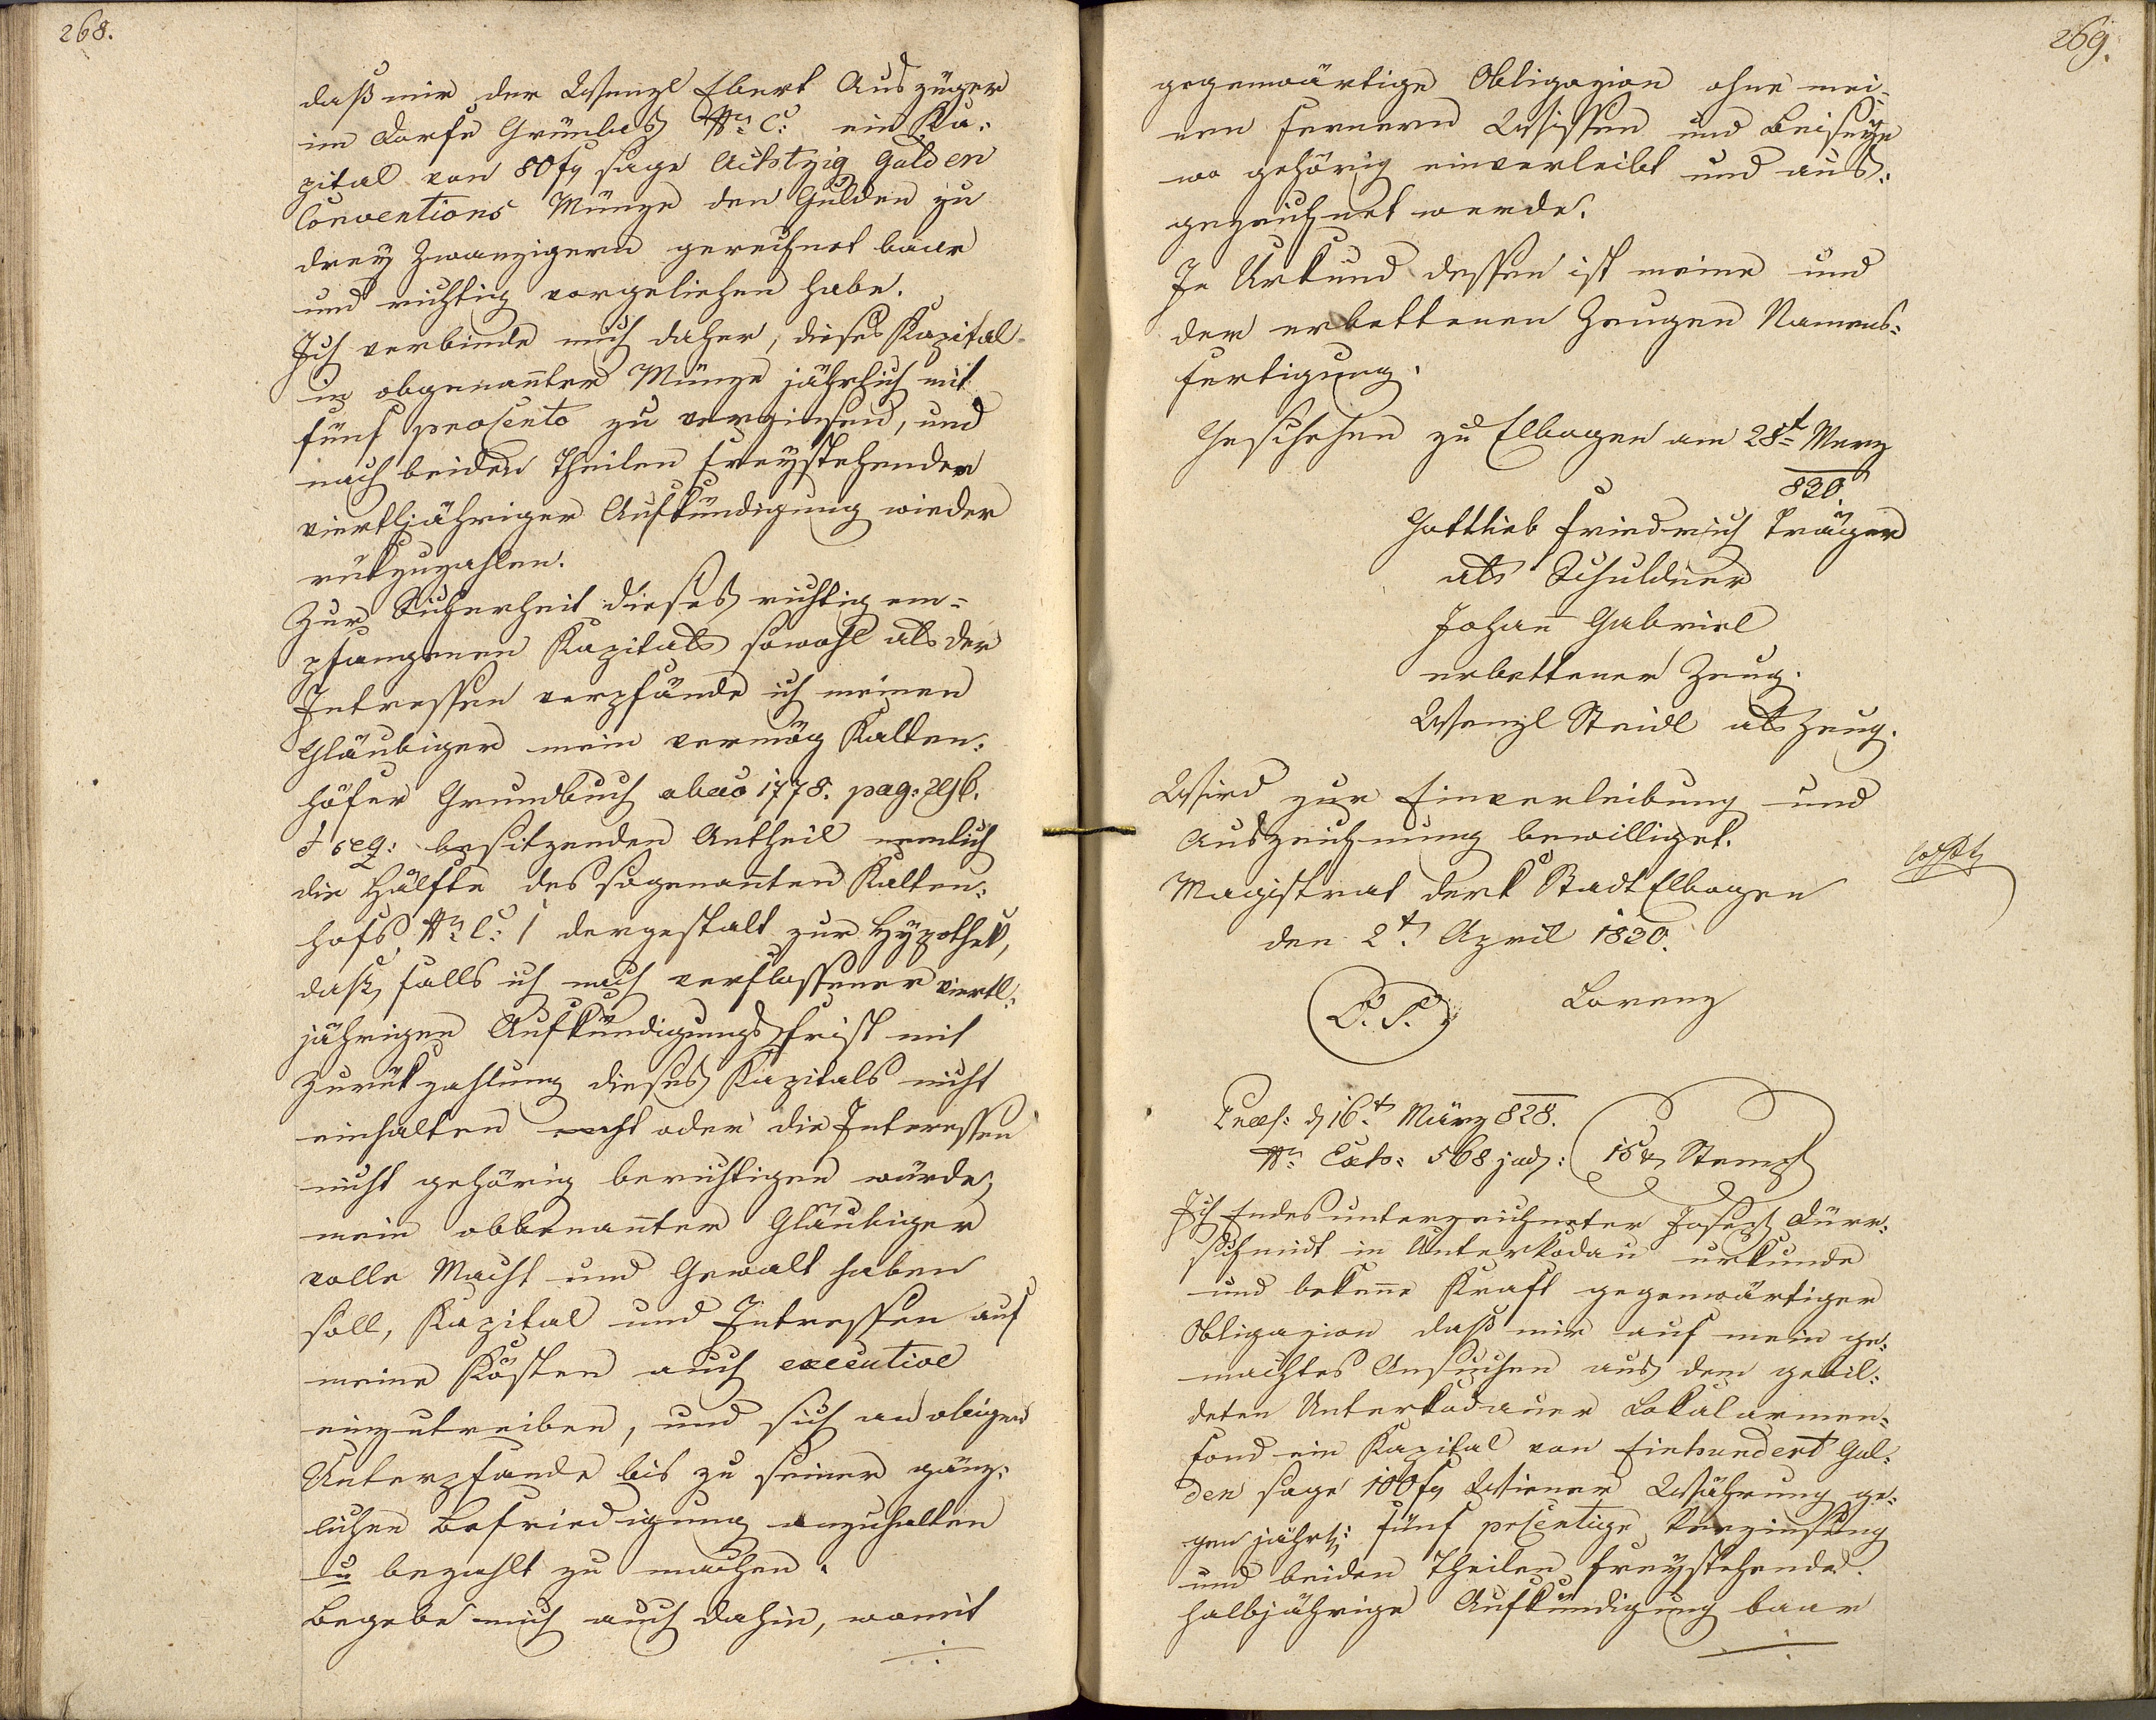 268.
daß mir der Wenzl Ebert Auszüger
im Dorfe Grünlas Nro C: ein Ka-
pital von 80 f sage Achtzig Gulden
Conventions Münze den Gulden zu
drey Zwanzigern gerechnet baar
und richtig vorgeliehen habe.
Ich verbinde mich daher, dieses Kapital
in obgenañter Münze jährlich mit
fünf procento zu verzinsen, und
nach beiden Theilen freystehender
viertljähriger Aufkündigung wieder
rükzuzahlen.
Zur Sicherheit dieses richtig em-
pfangenen Kapitals sowohl als der
Intressen verpfände ich meinem
Gläubiger mein vermög Kalten-
höfer Grundbuch abao 1778. pag:
& seq: besitzenden Antheil nemlich
die Hälfte des sogenañten Kalten-
hofs Nro C: 1 dergestalt zur Hypothek,
daß, falls ich nach verflossener viertl-
jährigen Aufkündigungsfrist mit
Zurükzahlung dieses Kapitals nicht
einhalten oder die Interessen
nicht gehörig berichtigen würde,
mein obbenañter Gläubiger
volle Macht und Gewalt haben
soll, Kapital und Intressen auf
meine Kösten auch executive
einzutreiben, und sich an obigen
Unterpfande bis zu seiner gänz-
lichen Befriedigung anzuhalten
u bezahlt zu machen.
Begebe mich auch dahin, womit
269.
gegenwärtige Obligazion ohne mei-
nen fernern Wissen und Beiseyn
wo gehörig einverleibt und aus-
gezeichnet werde.
In Urkund dessen ist meine und
der erbettenen Zeugen Namens-
fertigung.
Geschehen zu Elbogen am 28t Merz
830.
Gottlieb Friedrich Träger
als Schuldner
Johañ Gabriel
erbettener Zeug.
Wenzl Steidl als Zeug.
Wird zur Einverleibung und
Auszeichnung bewilliget.
Magistrat der k Stadt Elbogen
den 2t April 1830.
L. S. Lorenz
Praes: d 16t März 828.
Nro Exh: 568 jud: 15 x Stempl
Ich Endesunterzeichneter Josef Dürr-
schmidt in Unterkodau urkunde
und bekeñe Kraft gegenwärtiger
Obligazion daß mir auf mein ge-
machtes Ansuchen aus dem gebil-
deten Unterkodauer Lokalarmen-
fond ein Kapital von Einhundert Gul-
den sage 100 f Wiener Währung ge-
gen jährl: fünf prcentige Verzinsung
und beiden Theilen freystehende
halbjährige Aufkündigung baar